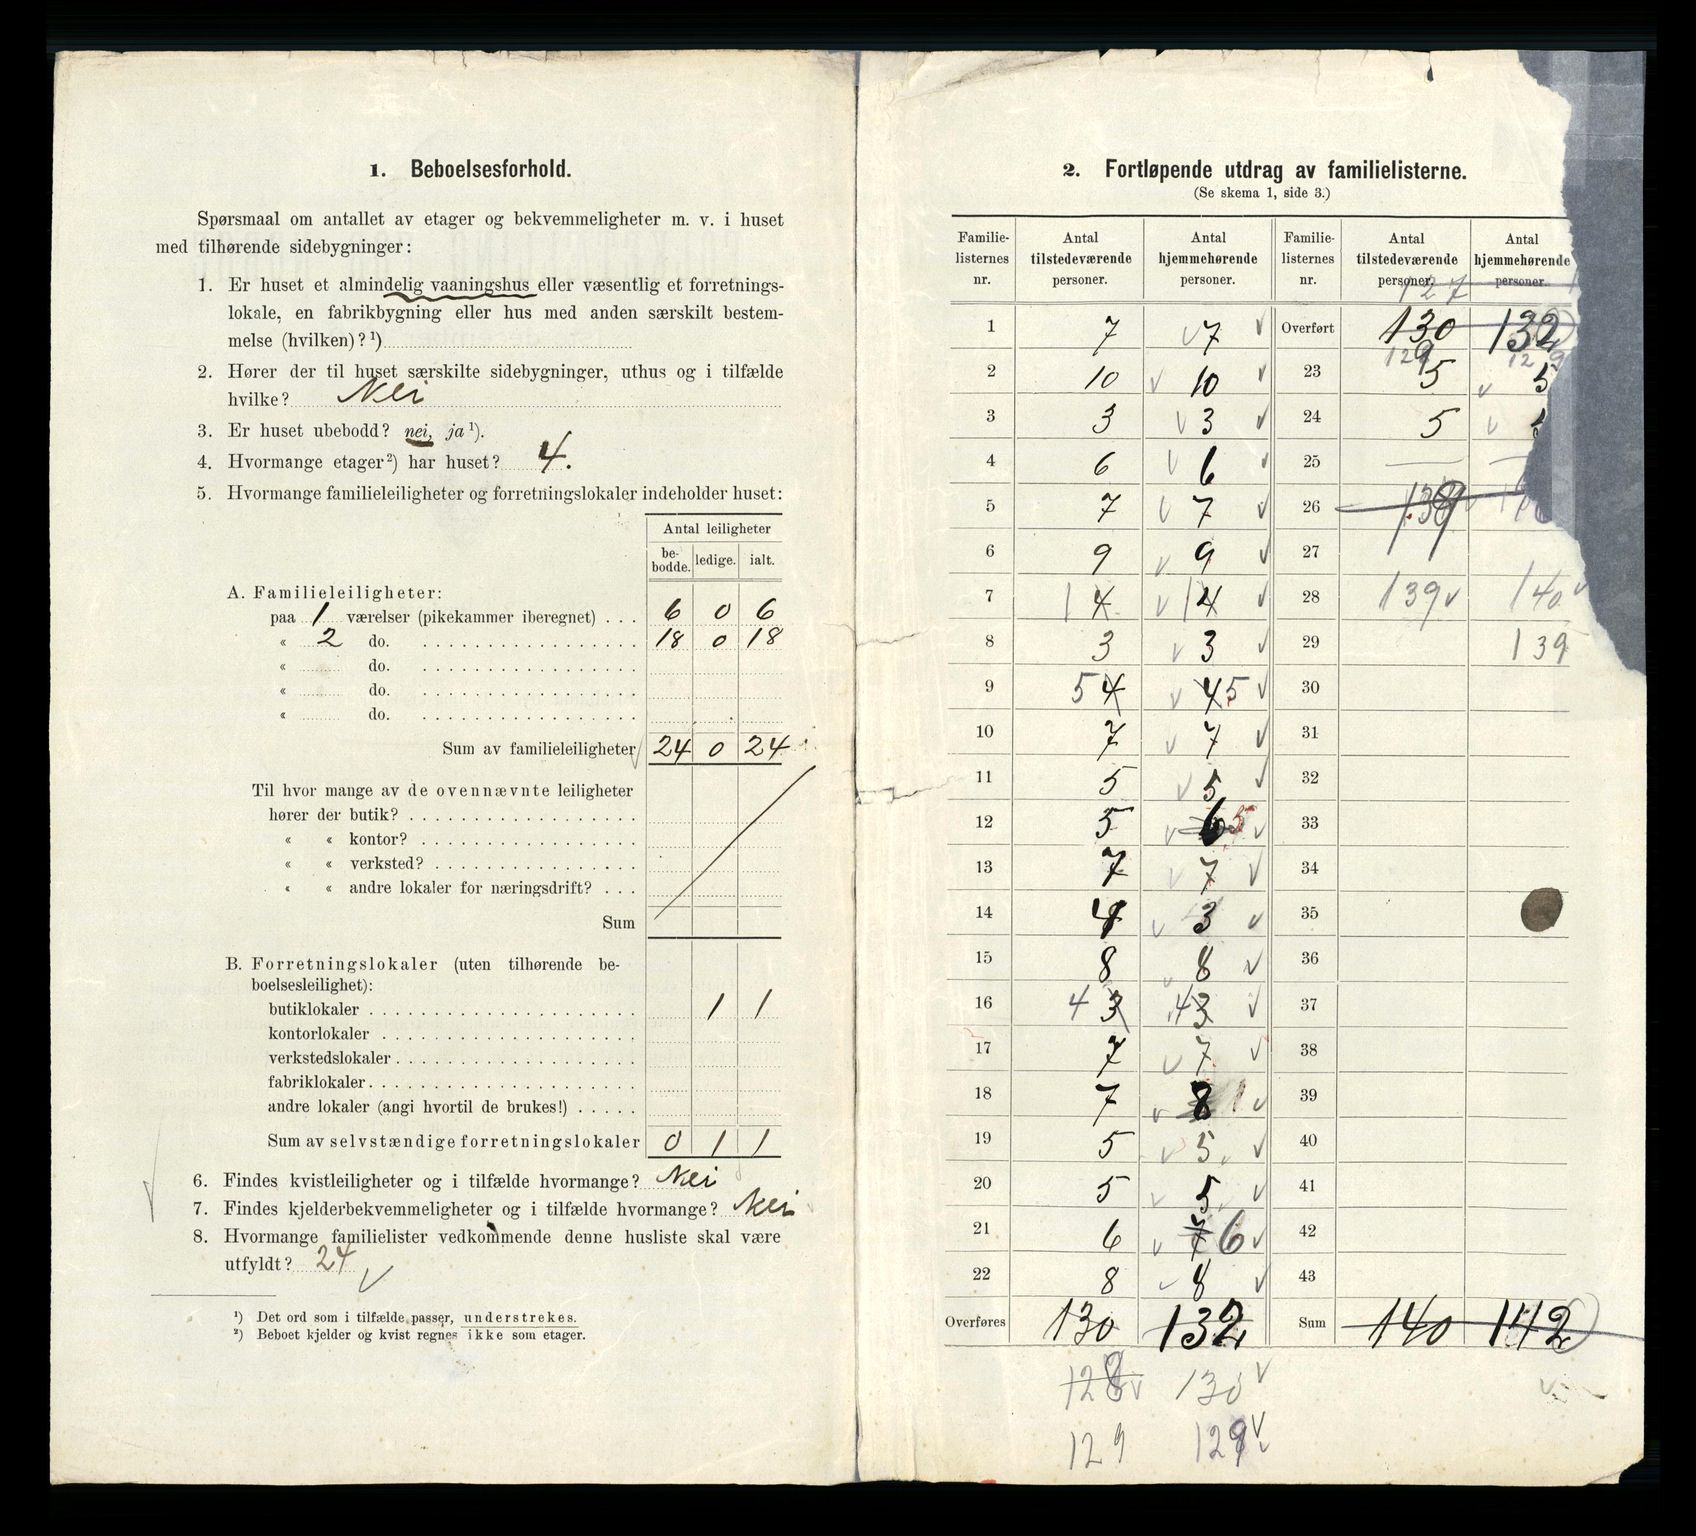 1. Beboelsesforhold.
Spørsmaal om antallet av etager og bekvemmeligheter m. v. i huset
med tilhørende sidebygninger:
1. Er huset et almindelig vaaningshus eller væsentlig et forretnings-
lokale, en fabrikbygning eller hus med anden særskilt bestem-
melse (hvilken)? ¹)
2. Hører der til huset særskilte sidebygninger, uthus og i tilfælde
hvilke? Nei
3. Er huset ubebodd? nei, ja ¹).
4. Hvormange etager ²) har huset? 4.
5. Hvormange familieleiligheter og forretningslokaler indeholder huset:
Antal leiligheter
be-bodde. ledige. ialt.
A. Familieleiligheter:
paa 1 værelser (pikekammer iberegnet) . . . 6 0 6
« 2 do. 18 0 18
« do.
« do.
« do.
Sum av familieleiligheter 24 0 24
Til hvor mange av de ovennævnte leiligheter
hører der butik?
« « kontor?
« « verksted?
« « andre lokaler for næringsdrift? . . .
Sum
B. Forretningslokaler (uten tilhørende be-
boelsesleilighet):
butiklokaler 1 1
kontorlokaler
verkstedslokaler
fabriklokaler
andre lokaler (angi hvortil de brukes!)
Sum av selvstændige forretningslokaler 0 1 1
6. Findes kvistleiligheter og i tilfælde hvormange? Nei
7. Findes kjelderbekvemmeligheter og i tilfælde hvormange? Nei
8. Hvormange familielister vedkommende denne husliste skal være
utfyldt? 24
¹) Det ord som i tilfælde passer, understrekes.
²) Beboet kjelder og kvist regnes ikke som etager.
2. Fortløpende utdrag av familielisterne.
(Se skema 1, side 3.)
Familie-listernes nr. Antal tilstedeværende personer. Antal hjemmehørende personer.
1 7 7
2 10 10
3 3 3
4 6 6
5 7 7
6 9 9
7 14 14
8 3 3
9 5 4 4 5
10 7 7
11 5 5
12 5 6 5
13 7 7
14 4 3
15 8 8
16 4 3 4 3
17 7 7
18 7 8
19 5 5
20 5 5
21 6 7 6
22 8 8
Overføres 130 132
128 130
129 129
Familie-listernes nr. Antal tilstedeværende personer. Antal hjemmehørende personer.
127
Overført 130 132
129 129
23 5 5
24 5
25 — —
26 138
27
28 139 140
29 139
30
31
32
33
34
35
36
37
38
39
40
41
42
43
Sum 140 142